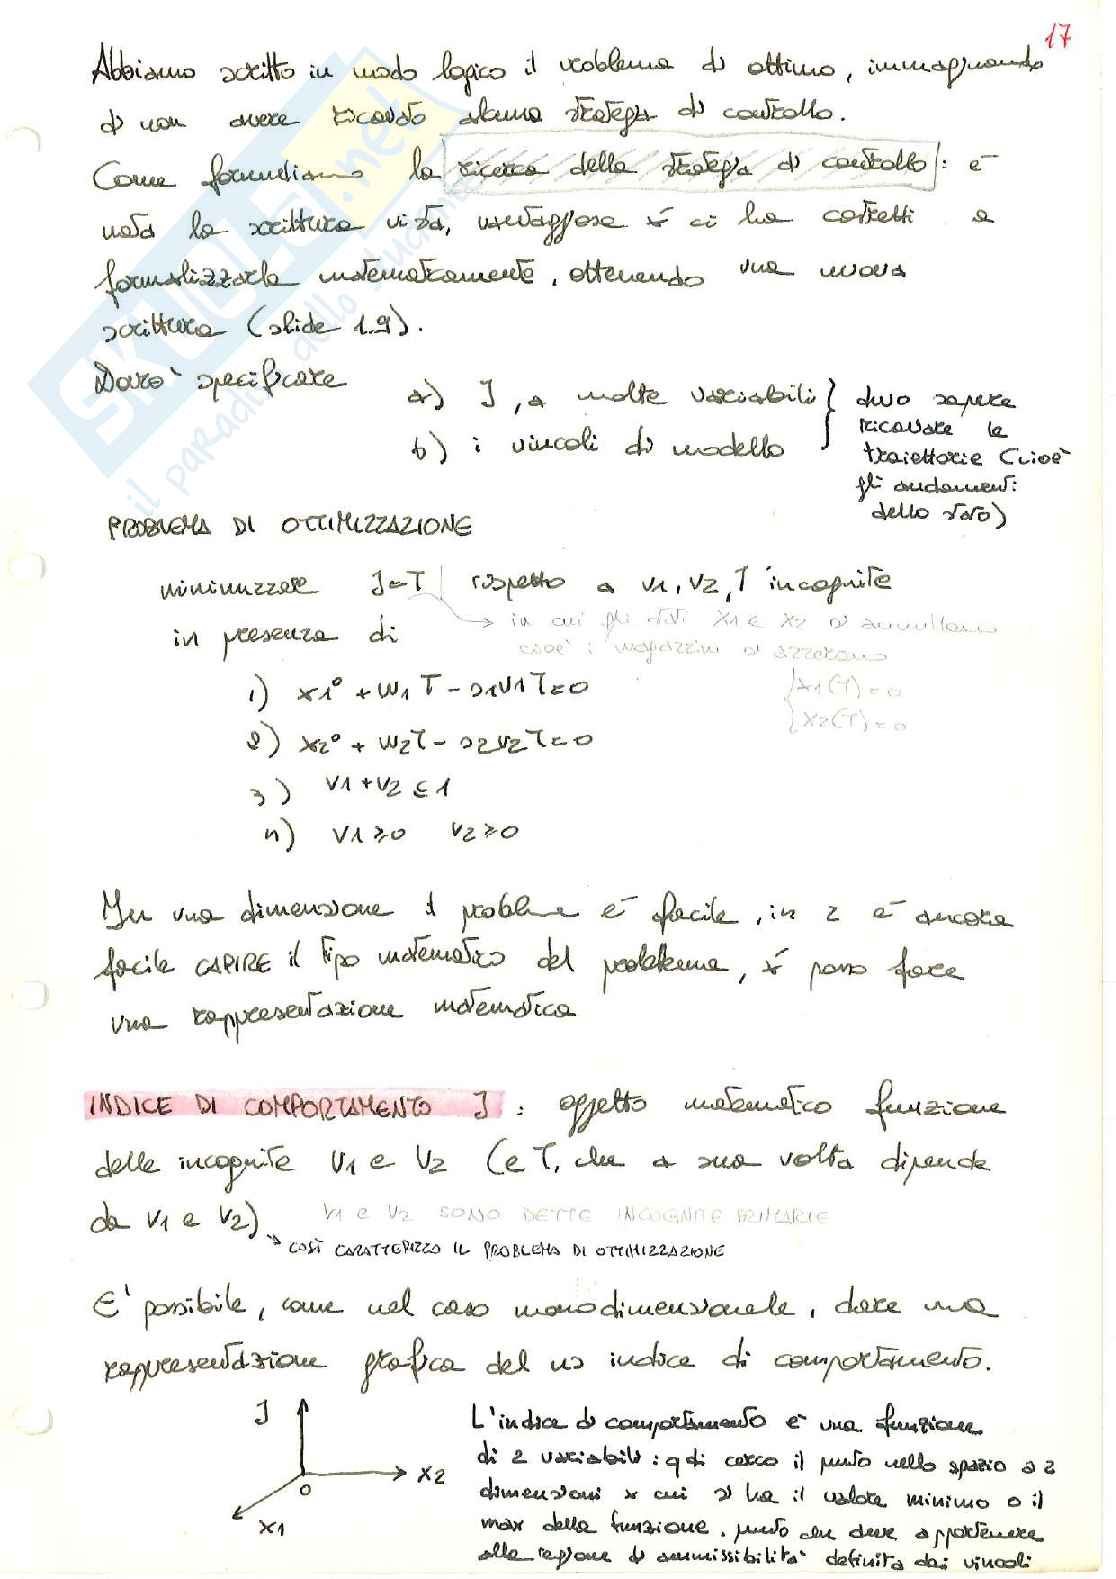 17
Abbiamo scritto in modo logico il problema di ottimo, immaginando
di non avere ricavato alcuna strategia di controllo.
Come formuliamo la ricerca della strategia di controllo: è
nota la scrittura vista, vantaggiosa xé ci ha costretti a
formalizzarla matematicamente, ottenendo una nuova
scrittura (slide 1.9).
Dovrò specificare
a) J, a molte variabili
b) i vincoli di modello
devo sapere
ricavare le
traiettorie (cioè
gli andamenti
dello stato)
PROBLEMA DI OTTIMIZZAZIONE
minimizzare J=T rispetto a v1, v2, T incognite
in presenza di
→ in cui gli stati x1 e x2 si annullano
cioè i magazzini si azzerano
x1(T)=0
x2(T)=0
1) x1° + w1 T - s1v1T=0
2) x2° + w2T - s2v2T=0
3) v1+v2 ≤ 1
4) v1≥0 v2≥0
In una dimensione il problema è facile, in 2 è ancora
facile CAPIRE il tipo matematico del problema, xé posso fare
una rappresentazione matematica
INDICE DI COMPORTAMENTO J : oggetto matematico funzione
delle incognite v1 e v2 (e T, che a sua volta dipende
da v1 e v2)
V1 e V2 SONO DETTE INCOGNITE PRIMARIE
→ COSÌ CARATTERIZZO IL PROBLEMA DI OTTIMIZZAZIONE
E' possibile, come nel caso monodimensionale, dare una
rappresentazione grafica del ns indice di comportamento.
J
x2
0
x1
L'indice di comportamento è una funzione
di 2 variabili: qdi cerco il punto nello spazio a 2
dimensioni x cui si ha il valore minimo o il
max della funzione, punto che deve appartenere
alla regione di ammissibilità definita dai vincoli
SKUOLA.net
il paradiso dello studente